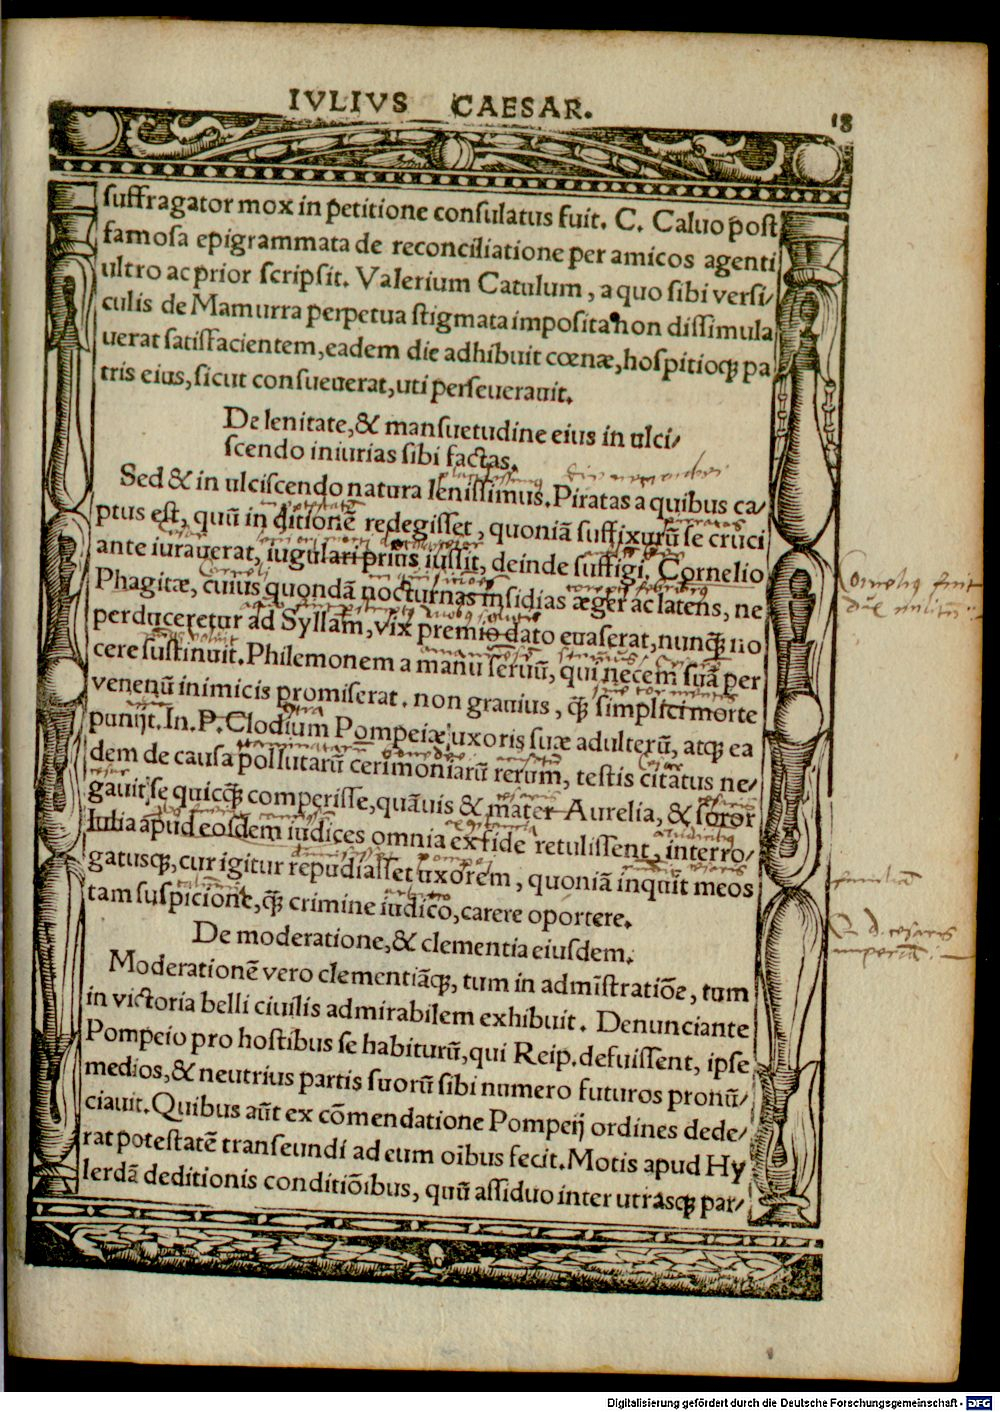 IVLIVS CAESAR.
18
suffragator mox in petitione consulatus fuit. C. Caluo post
famosa epigrammata de reconciliatione per amicos agenti
ultro ac prior scripsit. Valerium Catulum, a quo sibi versi/
culis de Mamurra perpetua stigmata imposita non dissimula
uerat satisfacientem, eadem die adhibuit cœnæ, hospitioq̃ pa
tris eius, sicut consueuerat, uti perseuerauit.
De lenitate, & mansuetudine eius in ulci/
scendo iniurias sibi factas.
Sed & in ulciscendo natura lenissimus. Piratas a quibus ca/
ptus est, quũ in ditionẽ redegisset, quoniã suffixurũ se cruci
ante iurauerat, iugulari prius iussit, deinde suffigi. Cornelio
Phagitæ, cuius quondã nocturnas insidias æger ac latens, ne
perduceretur ad Syllam, vix premio dato euaserat, nunq̃ no
cere sustinuit. Philemonem a manu seruũ, qui necem suã per
venenũ inimicis promiserat, non grauius, q̃ simplici morte
punijt. In. P. Clodium Pompeiæ uxoris suæ adulterũ, atq̃ ea
dem de causa pollutarũ cerimoniarũ rerum, testis citatus ne/
gauit se quicq̃ comperisse, quãuis & mater Aurelia, & soror
Iulia apud eosdem iudices omnia ex fide retulissent, interro/
gatusq̃, cur igitur repudiasset uxorem, quoniã inquit meos
tam suspicione, q̃ crimine iudico, carere oportere.
De moderatione, & clementia eiusdem.
Moderationẽ vero clementiãq̃, tum in admĩstratiõe, tum
in victoria belli ciuilis admirabilem exhibuit. Denunciante
Pompeio pro hostibus se habiturũ, qui Reip. defuissent, ipse
medios, & neutrius partis suorũ sibi numero futuros pronũ/
ciauit. Quibus aũt ex cõmendatione Pompeij ordines dede/
rat potestatẽ transeundi ad eum oĩbus fecit. Motis apud Hy
lerdã deditionis conditiõibus, quũ assiduo inter utrasq̃ par/
Cornelius fuit
familiã
Digitalisierung gefördert durch die Deutsche Forschungsgemeinschaft - DFG